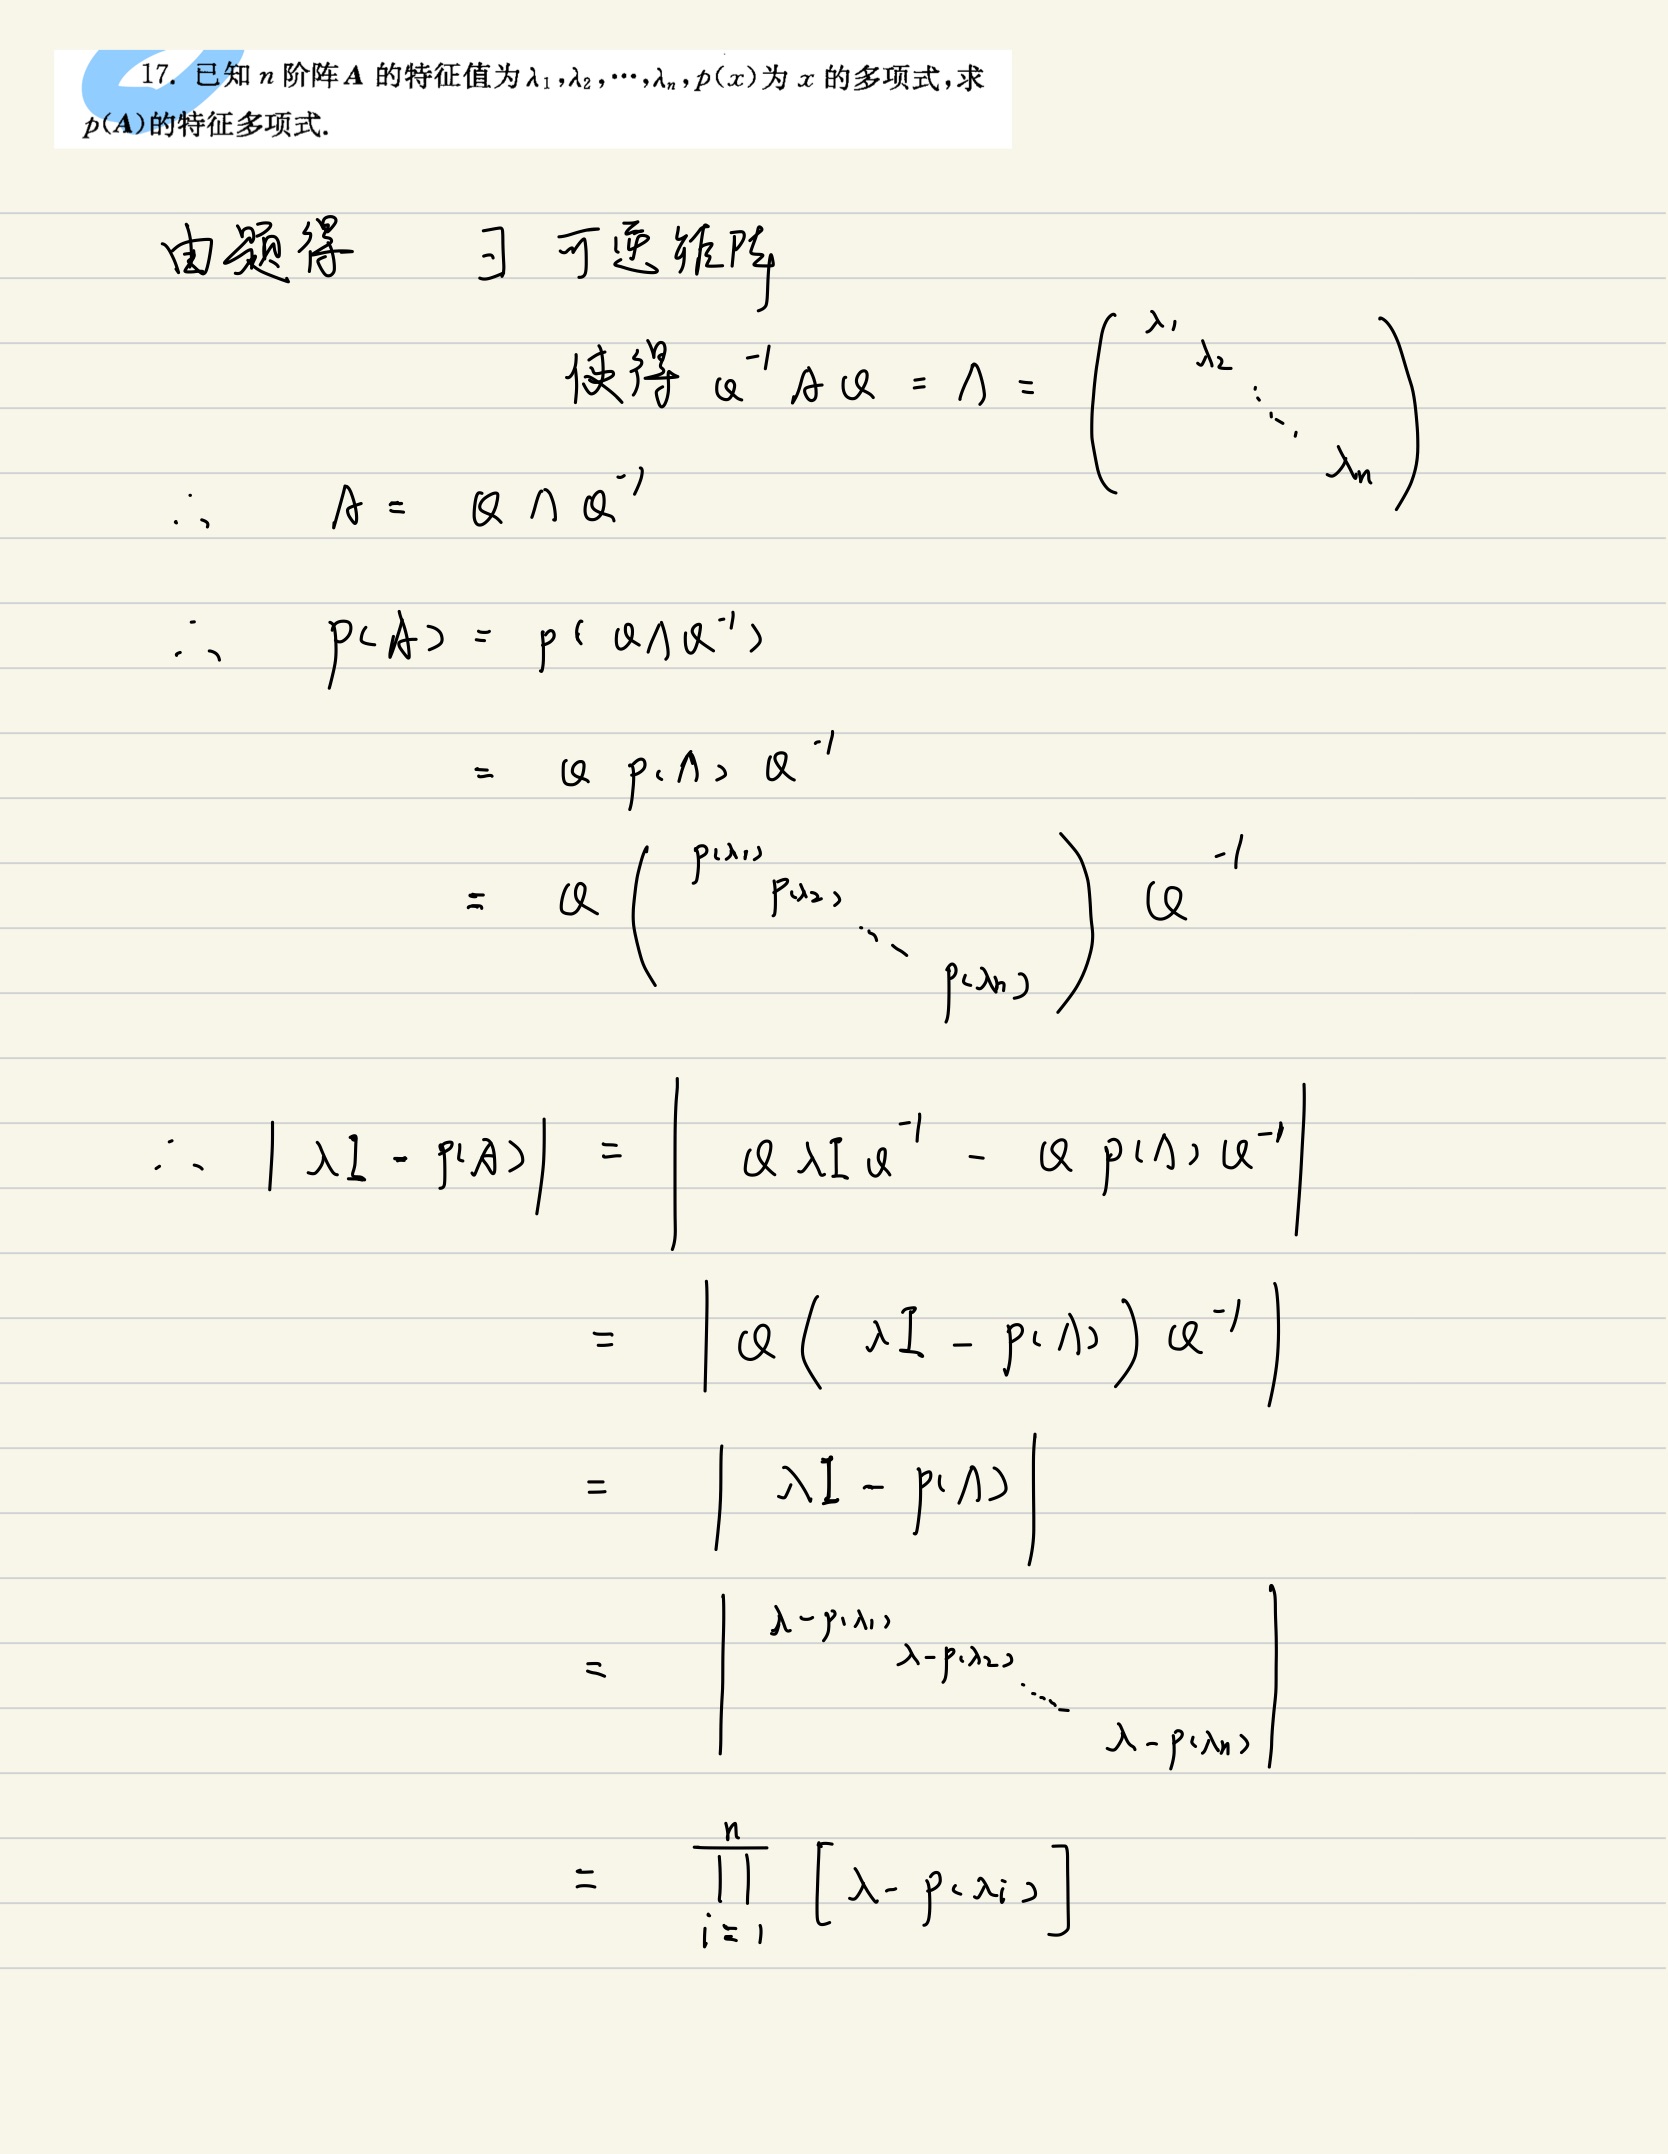 17. 已知 n 阶阵 A 的特征值为 λ₁,λ₂,⋯,λₙ,p(x)为 x 的多项式,求
p(A)的特征多项式.
由题得 ∃ 可逆矩阵
使得 Q⁻¹ A Q = Λ = ( λ₁ λ₂ ⋱ λₙ )
∴ A = Q Λ Q⁻¹
∴ p(A) = p( QΛQ⁻¹ )
= Q p(Λ) Q⁻¹
= Q ( p(λ₁) p(λ₂) ⋱ p(λₙ) ) Q⁻¹
∴ | λI - p(A) | = | Q λI Q⁻¹ - Q p(Λ) Q⁻¹ |
= | Q ( λI - p(Λ) ) Q⁻¹ |
= | λI - p(Λ) |
= | λ-p(λ₁) λ-p(λ₂) ⋱ λ-p(λₙ) |
= ∏ⁿᵢ₌₁ [ λ- p(λᵢ) ]